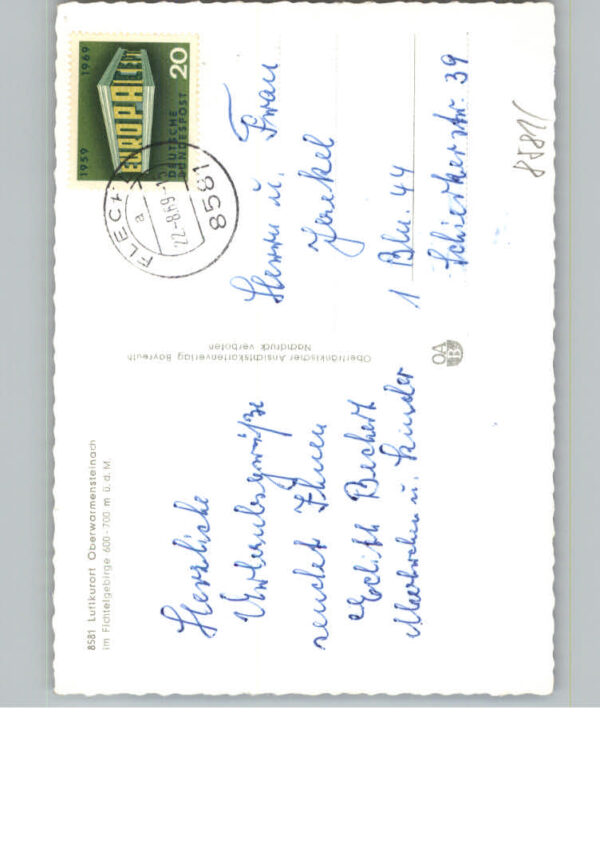 8581 Luftkurort Oberwarmensteinach
im Fichtelgebirge 600-700 m ü. d. M.
Herzliche
Urlaubsgrüße
sendet Ihnen
Edith Bechert
u. Kinder
Oberfränkischer Ansichtskartenverlag Bayreuth
Nachdruck verboten
OA
1959 EUROPA CEPT 1969
DEUTSCHE
BUNDESPOST
20
8581
22.-8.69-1
a
Herrn u. Frau
Jaekel
1 Bln. 44
Schierkerstr. 39